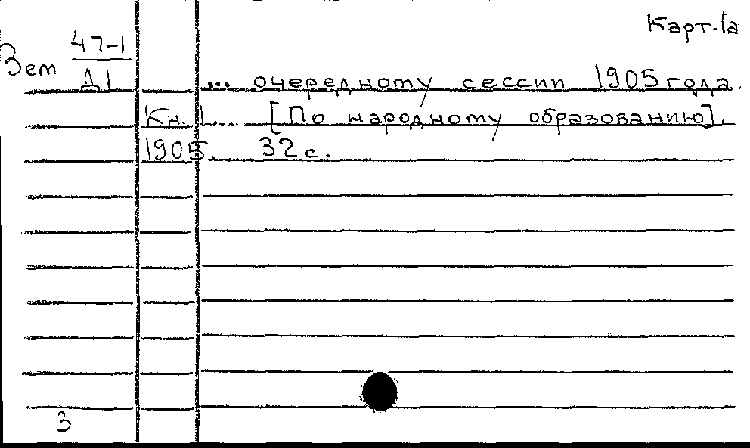 Карт.1а
47-1
Зем Д1 ... очередному сессии 1905 года.
Кн. 1... [По народному образованию].
1905. 32 с.
3